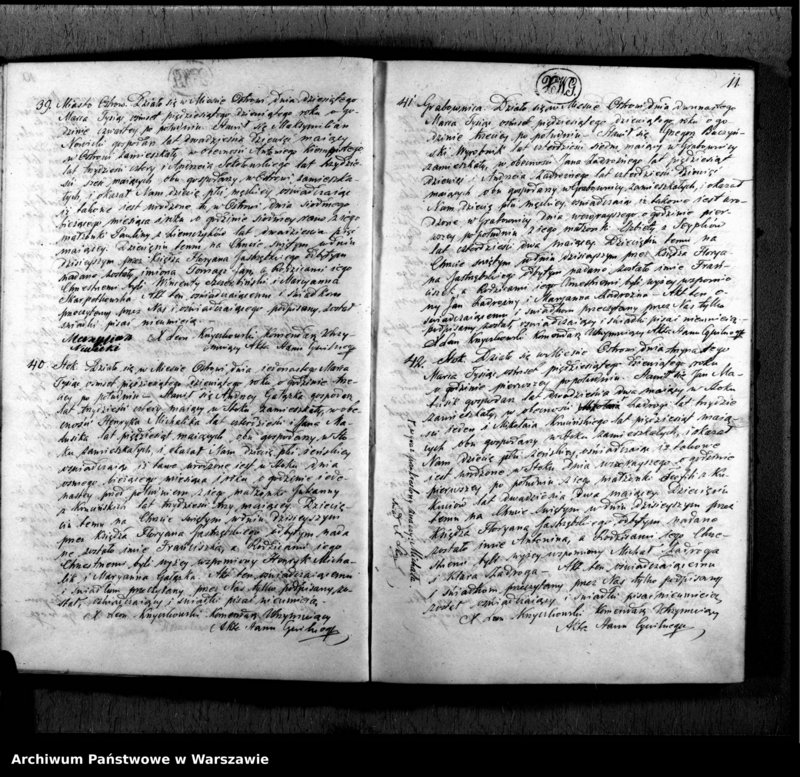 39. Miasto Ostrów. Działo się w Mieście Ostrowi dnia dziesiątego
Marca Tysiąc osmset pięćdziesiątego dziewiątego roku o go-
dzinie czwartej po południu. Stawił się Maksymilian
Nowicki gospodarz lat dwadzieścia dziewięć mający
w Ostrowi zamieszkały w obecności
lat trzydzieści cztery i lat trzydzie-
ści sześć mających obu gospodarzy, w Ostrowi zamieszka-
łych, i okazał Nam dziecię płci męzkiej oświadczając
iż takowe jest urodzone tu w Ostrowi dnia siódmego
bieżącego miesiąca i roku o godzinie siódmej rano z jego
małżonki Pauliny z lat dwadzieścia pięć
mającej. Dziecięciu temu na Chrzcie Świętym w dniu
dzisiejszym przez Księdza Floryana Jastrzębskiego odbytym
nadane zostały imiona Tomasz Jan, a Rodzicami jego
Chrzestnemi byli Wincenty i Maryanna
Skarpetkowska. Akt ten oświadczającemu i Świadkom
przeczytany przez Nas i oświadczającego podpisany został
świadki pisać nieumieją.
X Adam Knyszkowski Komendarz Utrzy-
mujący Akta Stanu Cywilnego
40. Stok. Działo się w Mieście Ostrowi dnia jedenastego Marca
Tysiąc osmset pięćdziesiątego dziewiątego roku o godzinie trze-
ciej po południu. Stawił się Andrzej Gałązka gospodarz
lat trzydzieści cztery mający w Stoku zamieszkały, w obe-
cności Henryka Michalika lat czterdzieści i Jana Ma-
tusika lat pięćdziesiąt mających obu gospodarzy w Sto-
ku zamieszkałych, i okazał Nam dziecię płci żeńskiej
oświadczając iż takowe urodzone jest w Stoku dnia
osmego bieżącego miesiąca i roku o godzinie jede-
nastej przed południem z jego małżonki Julianny
z lat trzydzieści trzy mającej. Dziecię-
ciu temu na Chrzcie Świętym w dniu dzisiejszym
przez Księdza Floryana Jastrzębskiego odbytym nada-
ne zostało imie Franciszka, a Rodzicami jego
Chrzestnemi byli wyżej wspomniony Henryk Micha-
lik i Maryanna Gałązka. Akt ten oświadczającemu
i Świadkom przeczytany przez Nas tylko podpisany zo-
stał, oświadczający i świadki pisać nieumieją.
X Adam Knyszkowski Komendarz Utrzymujący
Akta Stanu Cywilnego
11
41. Grabownica. Działo się w Mieście Ostrowi dnia dwunastego
Marca Tysiąc osmset pięćdziesiątego dziewiątego roku o go-
dzinie trzeciej po południu. Stawił się Grzegorz Baczyń-
ski Wyrobnik lat czterdzieści siedm mający w Grabownicy
zamieszkały, w obecności Jana Zadroznego lat pięćdziesiąt
dziewięć i Andrzeja Zadroznego lat czterdzieści dziewięć
mających obu gospodarzy w Grabownicy zamieszkałych, i okazał
Nam dziecię płci męzkiej oświadczając iż takowe jest uro-
dzone w Grabownicy dnia wczorajszego o godzinie pier-
wszej po południu z jego małżonki Elżbiety z
lat czterdzieści dwa mającej. Dziecięciu temu na
Chrzcie Świętym w dniu dzisiejszym przez Księdza Florya-
na Jastrzębskiego odbytym nadane zostało imie Fran-
ciszek, a Rodzicami jego Chrzestnemi byli wyżej wspomnio-
ny Jan Zadrozny i Maryanna Zadrozna. Akt ten o-
świadczającemu i świadkom przeczytany przez Nas tylko
podpisany został, oświadczający i świadki pisać nieumieją.
X Adam Knyszkowski Komendarz Utrzymujący Akta Stanu Cywilnego
42. Stok. Działo się w Mieście Ostrowi dnia trzynastego
Marca Tysiąc osmset pięćdziesiątego dziewiątego roku
o godzinie pierwszej po południu. Stawił się Jan Ma-
tusik gospodarz lat dwadzieścia dwa mający w Stoku
zamieszkały, w obecności Zadrogi lat trzydzie-
ści siedm i Mikołaja lat pięćdziesiąt mają-
cych obu gospodarzy w Stoku zamieszkałych, i okazał
Nam dziecię płci żeńskiej, oświadczając iż takowe
jest urodzone w Stoku dnia wczorajszego o godzinie
pierwszej po południu z jego małżonki Józefy z Ku-
lat dwadzieścia dwa mającej. Dziecięciu
temu na Chrzcie Świętym w dniu dzisiejszym przez
Księdza Floryana Jastrzębskiego odbytym nadane
zostało imie Antonina, a Rodzicami jego Chrze-
stnemi byli wyżej wspomniony Michał Zadroga
i Klara Zadroga. Akt ten oświadczającemu
i świadkom przeczytany przez Nas tylko podpisany
został oświadczający i świadki pisać nieumieją.
X Adam Knyszkowski Komendarz Utrzymujący
Akta Stanu Cywilnego
Archiwum Państwowe w Warszawie